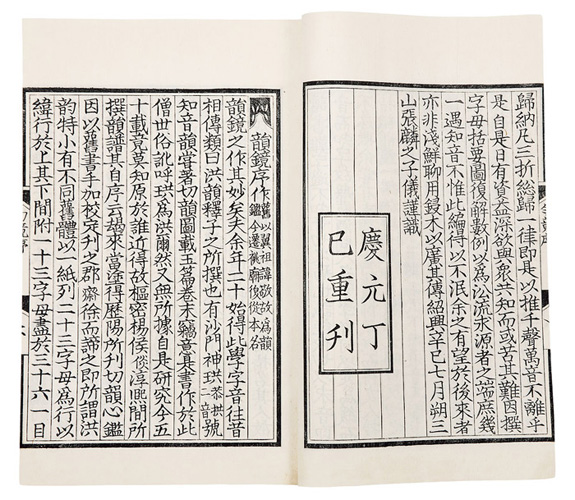 歸納凡三折總歸一律即是以推千聲萬音不離乎
是自是日有資益深欲與衆共知而或苦其難因撰
字母括要圖復解數例以爲沿流求源者之端庶幾
一遇知音不惟此編得以不泯余之有望於後來者
亦非淺鮮聊用鋟木以廣其傳紹興辛巳七月朔三
山張麟之子儀謹識
慶元丁
巳重刋
韻鏡序作舊以翼祖諱敬故爲韻
鑑今遷祧廟復從本名
韻鏡之作其妙矣夫余年二十始得此學字音往昔
相傳類曰洪韻釋子之所撰也有沙門神珙恭拱二音號
知音韻嘗著切韻圖載玉篇卷末竊意是書作於此
僧世俗訛呼珙爲洪爾然又無所據自是研究今五
十載竟莫知原於誰近得故樞密楊侯倓淳熙間所
撰韻譜其自序云朅來當塗得歷陽所刋切韻心鑑
因以舊書手加校定刋之郡齋徐而諦之即所謂洪
韵特小有不同舊體以一紙列二十三字母爲行以
緯行於上其下間附一十三字母盡於三十六一目